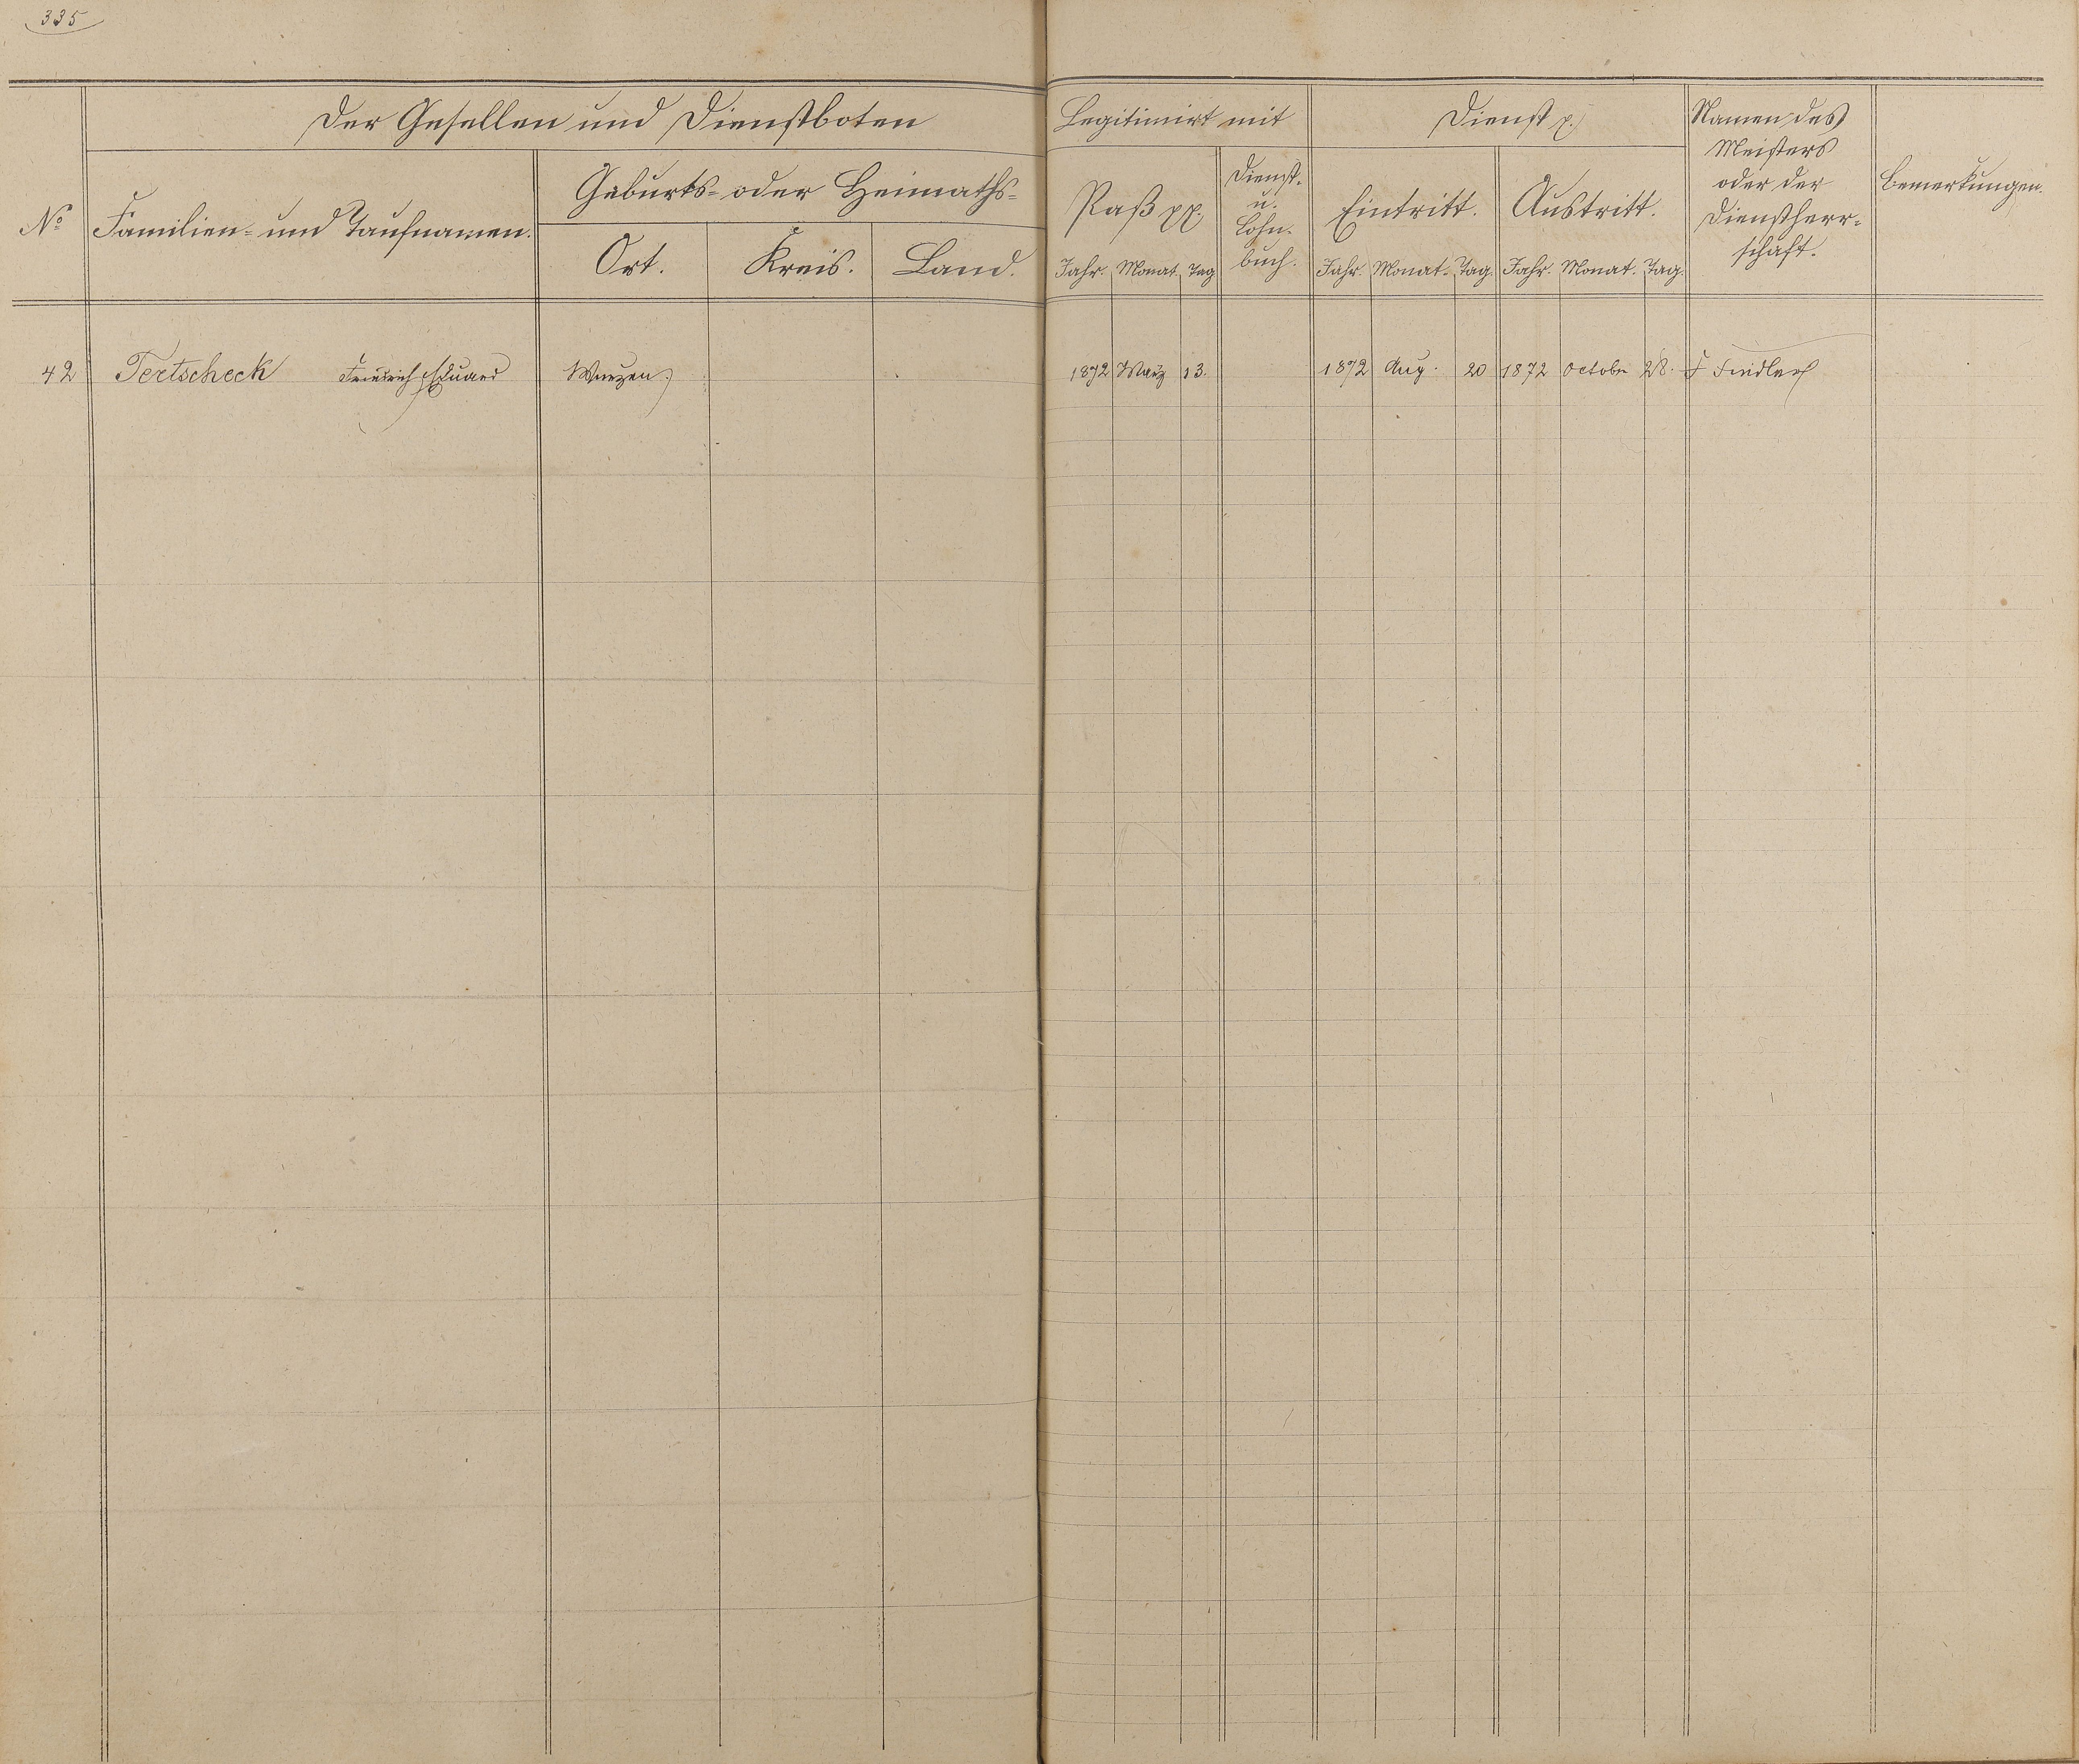 335
Der Gesellen und Dienstboten
Legitimirt mit
Dienst p.
Namen des
Meisters
oder der
Dienstherr=
schaft.
Bemerkungen.
No
Familien= und Taufnamen.
Geburts= oder Heimaths=
Ort. Kreis. Land.
Paß pp.
Dienst-
u.
Lohn-
buch.
Eintritt. Austritt.
Jahr. Monat. Tag Jahr. Monat. Tag. Jahr. Monat. Tag.
42 Tertscheck Friedrich Eduard Wurzen. 1872 März 13. 1872 Aug. 20 1872 October 28. F Fiedler